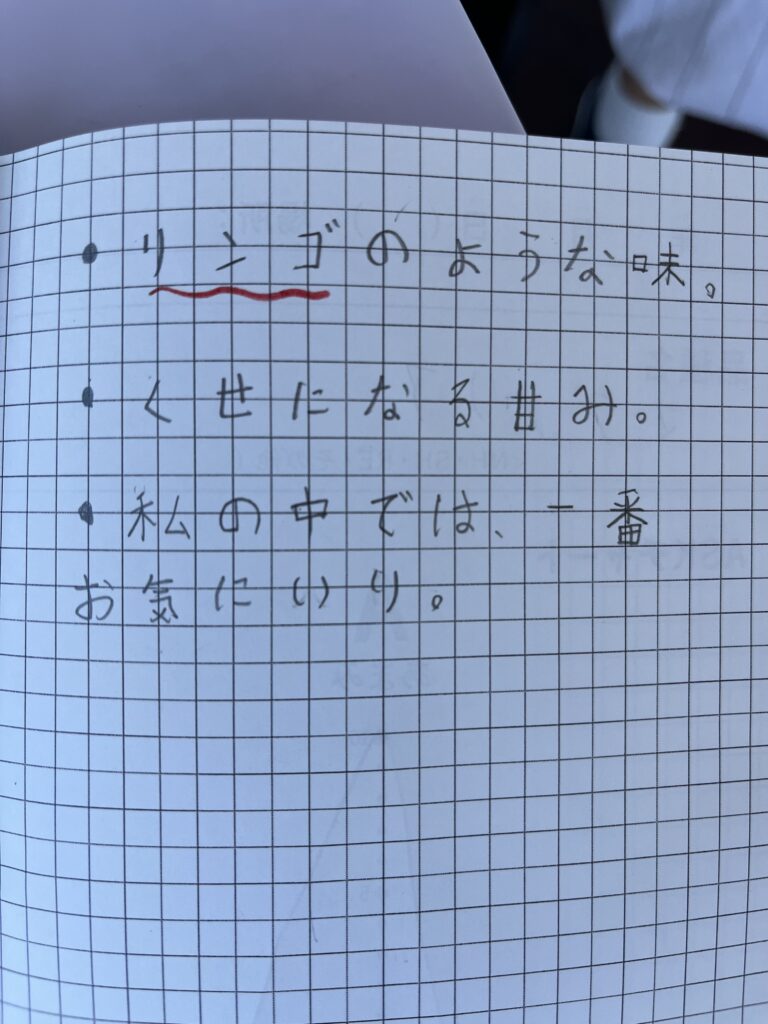 ・リンゴのような味。
・くせになる甘み。
・私の中では、一番
お気にいり。